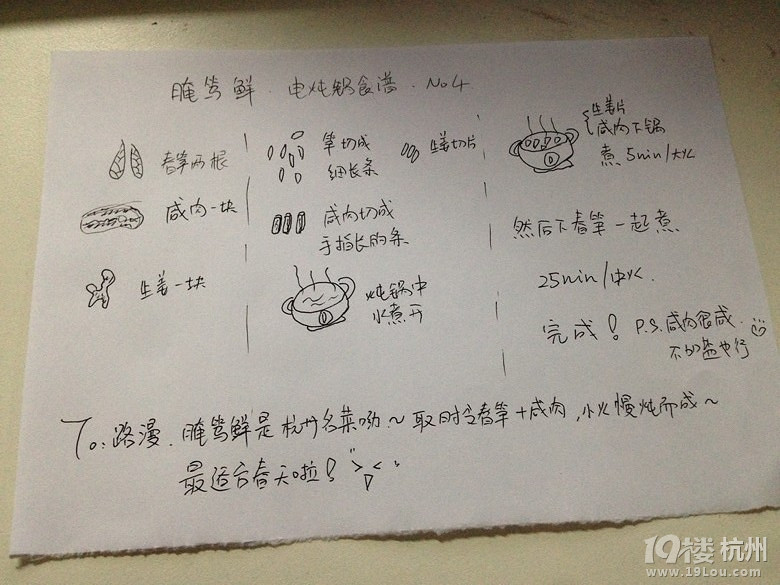 腌笃鲜·电炖锅食谱·No4
春笋两根
咸肉一块
生姜一块
笋切成
细长条
生姜切片
咸肉切成
手指长的条
炖锅中
水煮开
生姜片
咸肉下锅
煮5min/大火
然后下春笋一起煮
25min/中火
完成! P.S.咸肉很咸.
不加盐也行
To:路漫.腌笃鲜是杭州名菜呦~取时令春笋+咸肉,小火慢炖而成~
最适合春天啦!
19楼杭州
www.19Lou.com